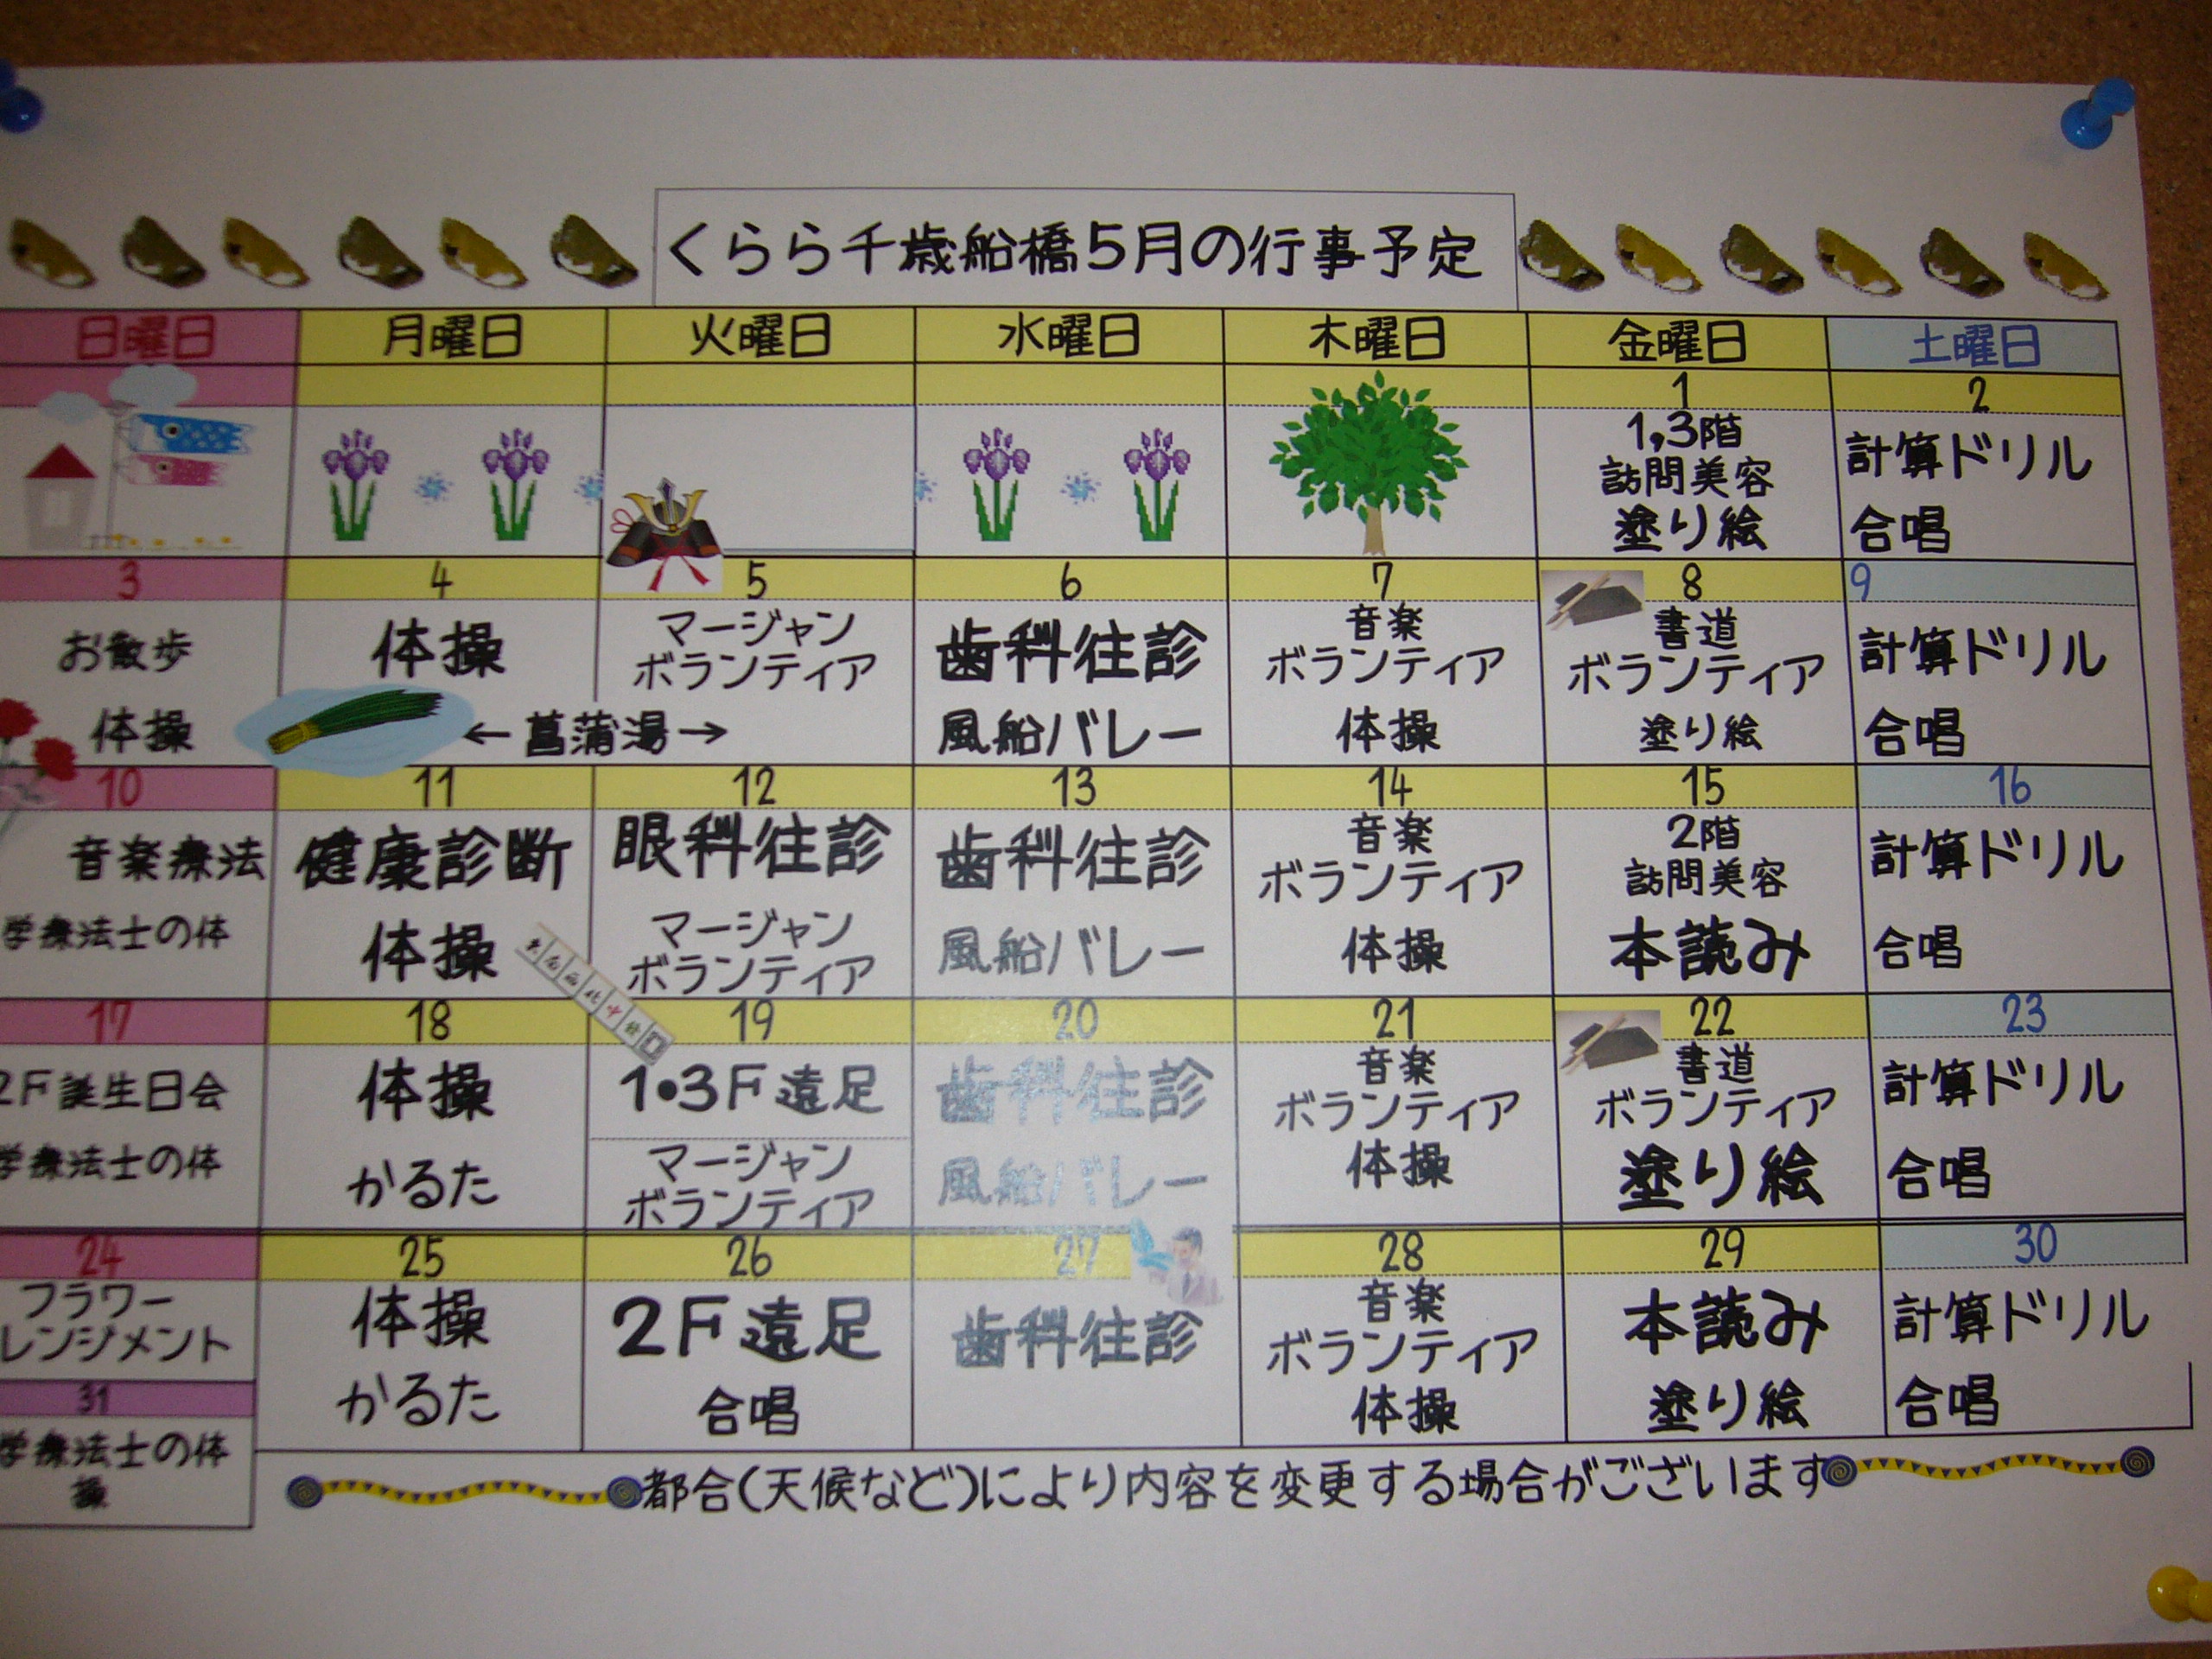 くらら千歳船橋5月の行事予定
日曜日 月曜日 火曜日 水曜日 木曜日 金曜日 土曜日
1 2
1,3階
訪問美容
塗り絵
計算ドリル
合唱
3 4 5 6 7 8 9
お散歩
体操
体操
マージャン
ボランティア
←菖蒲湯→
歯科往診
風船バレー
音楽
ボランティア
体操
書道
ボランティア
塗り絵
計算ドリル
合唱
10 11 12 13 14 15 16
音楽療法
学療法士の体
健康診断
体操
眼科往診
マージャン
ボランティア
歯科往診
風船バレー
音楽
ボランティア
体操
2階
訪問美容
本読み
計算ドリル
合唱
17 18 19 20 21 22 23
2F誕生日会
学療法士の体
体操
かるた
1•3F遠足
マージャン
ボランティア
歯科往診
風船バレー
音楽
ボランティア
体操
書道
ボランティア
塗り絵
計算ドリル
合唱
24 25 26 27 28 29 30
フラワー
レンジメント
体操
かるた
2F遠足
合唱
歯科往診
音楽
ボランティア
体操
本読み
塗り絵
計算ドリル
合唱
31
学療法士の体
操
都合(天候など)により内容を変更する場合がございます